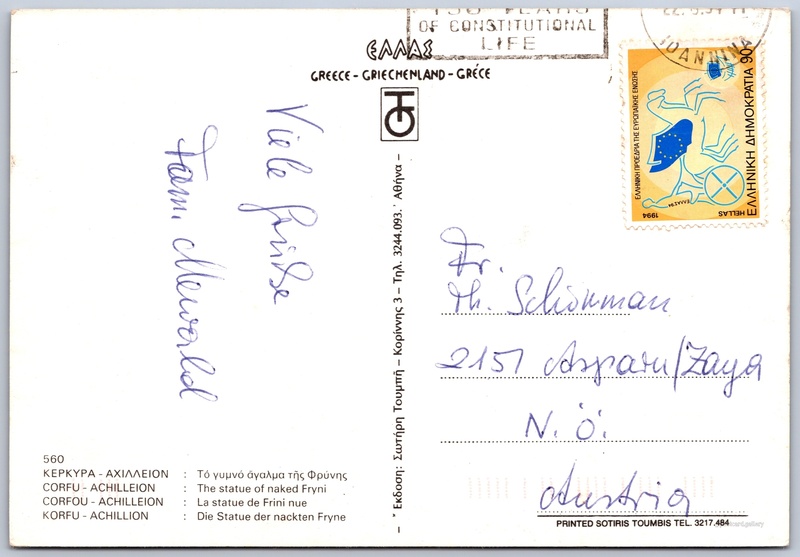 150 YEARS
OF CONSTITUTIONAL
LIFE
22. 8. 94
IOANNINA
ΕΛΛΑΣ
GREECE - GRIECHENLAND - GRÉCE
ΕΛΛΗΝΙΚΗ ΠΡΟΕΔΡΙΑ ΤΗΣ ΕΥΡΩΠΑΪΚΗΣ ΕΝΩΣΗΣ
ΕΛΛΗΝΙΚΗ ΔΗΜΟΚΡΑΤΙΑ 90
HELLAS
1994
Viele Grüße
Fam. Mewald
Fr.
Th. Schömman
2151 Asparn/Zaya
N. Ö.
Austria
Έκδοση: Σωτήρη Τουμπή - Κορίννης 3 - Τηλ. 3244.093. Αθήνα -
560
ΚΕΡΚΥΡΑ - ΑΧΙΛΛΕΙΟΝ : Τό γυμνό άγαλμα τῆς Φρύνης
CORFU - ACHILLEION : The statue of naked Fryni
CORFOU - ACHILLEION : La statue de Frini nue
KORFU - ACHILLION : Die Statue der nackten Fryne
PRINTED SOTIRIS TOUMBIS TEL. 3217.484